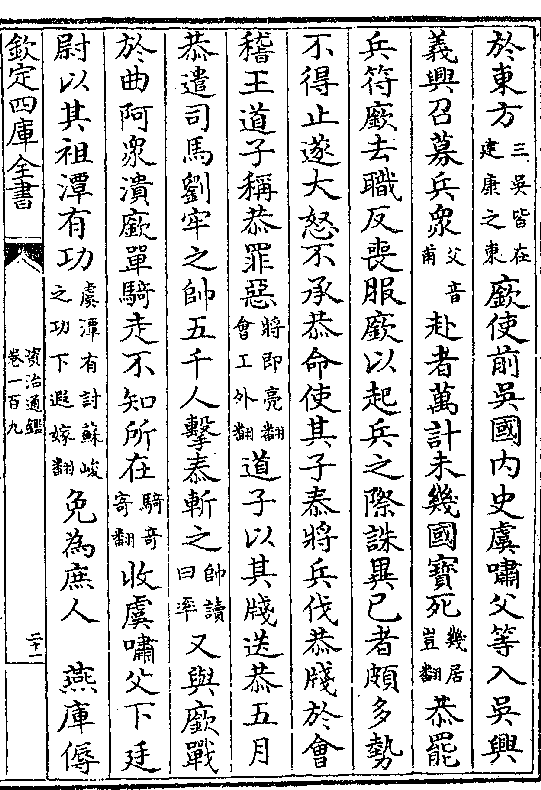 於東方三吳皆在建康之東廞使前吳國內史虞嘯父等入吳興
義興召募兵衆父音甫赴者萬計未幾國寶死幾居豈翻恭罷
兵符廞去職反喪服廞以起兵之際誅異己者頗多勢
不得止遂大怒不承恭命使其子泰將兵伐恭牋於會
稽王道子稱恭罪惡將即亮翻會工外翻道子以其牋送恭五月
恭遣司馬劉牢之帥五千人擊泰斬之帥讀曰率又與廞戰
於曲阿衆潰廞單騎走不知所在騎奇寄翻收虞嘯父下廷
尉以其祖潭有功虞潭有討蘇峻之功下遐嫁翻免為庶人 燕庫傉
欽定四庫全書
資治通鑑
卷一百九
二十一